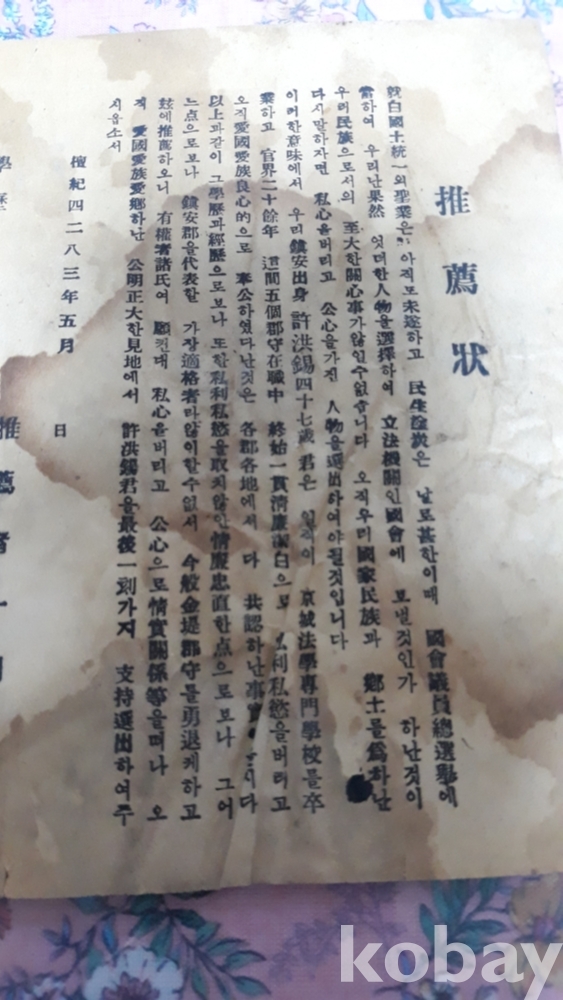 推薦狀
就白國土統一의聖業은 아직도未遂하고 民生塗炭은 날로甚한이때 國會議員總選擧에
當하여 우리난果然 엇더한人物을選擇하여 立法機關인國會에 보낼것인가 하난것이
우리民族으로서의 至大한關心事가않일수없습니다 오직우리國家民族과 鄕土를爲하난
다시말하자면 私心을버리고 公心을가진 人物을選出하여야될것입니다
이러한意味에서 우리鎭安出身 許洪錫四十七歲 君은 일즉이 京城法學專門學校를卒
業하고 官界二十餘年 這間五個郡守在職中 終始一貫淸廉潔白으로 私利私慾을버리고
오직愛國愛族良心的으로 奉公하였다난것은 各郡各地에서 다 共認하난事實
以上과같이 그學歷과經歷으로보나 또한私利私慾을取지않안淸廉忠直한点으로보나 그어
느点으로보나 鎭安郡을代表할 가장適格者라않이할수없서 今般金堤郡守를勇退케하고
玆에推薦하오니 有權者諸氏여 願컨대 私心을버리고 公心으로情實關係等을떠나 오
직 愛國愛族愛鄕하난 公明正大한見地에서 許洪錫君을最後一刻가지 支持選出하여주
시옵소서
檀紀四二八三年五月 日
推薦者一同
學歷
kobay